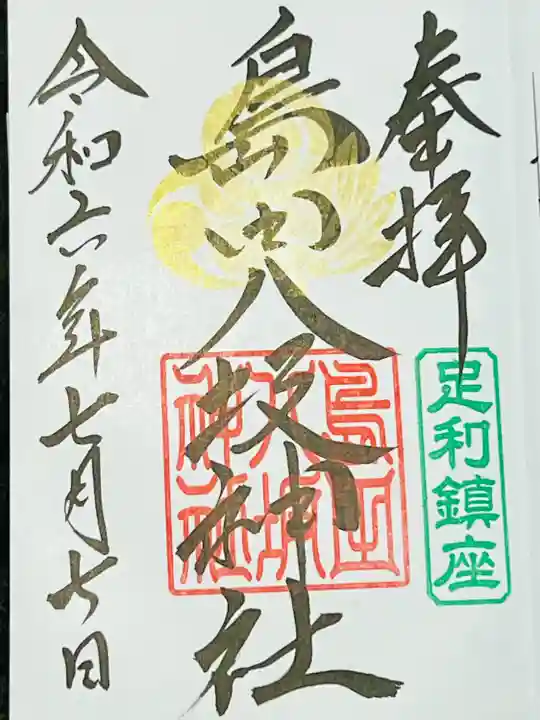 奉拝
足利鎮座
島田八坂神社
島田
八坂
神社
令和六年七月七日